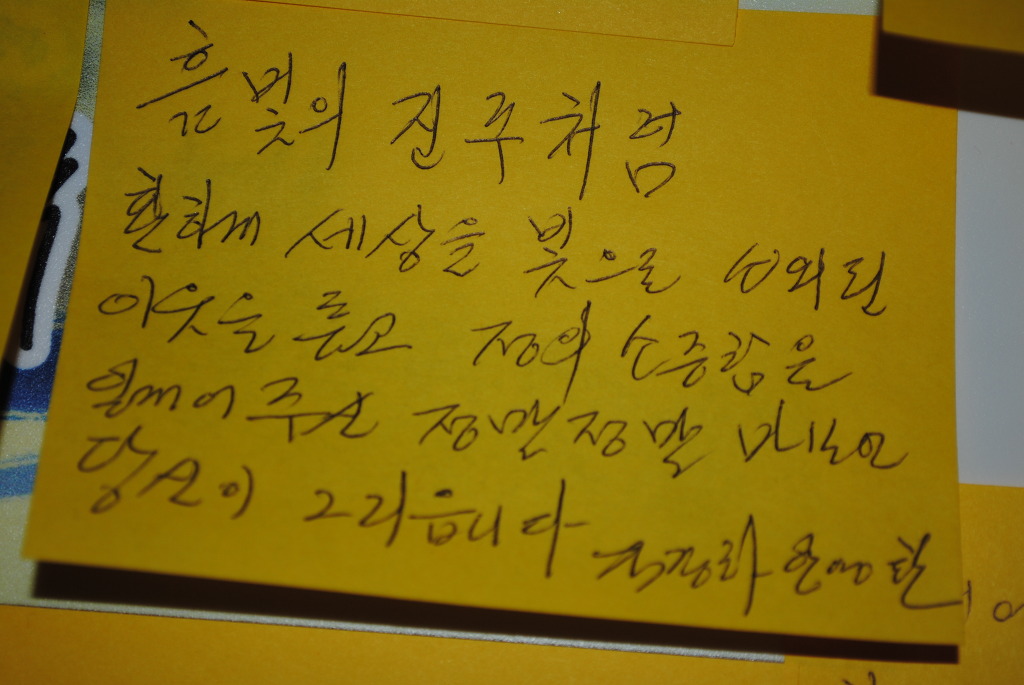 흙빛의 진주처럼
환하게 세상을 빛으로 소외된
이웃을 품고 정의 소중함을
일깨어 주신 정말 정말 바보
당신이 그리읍니다